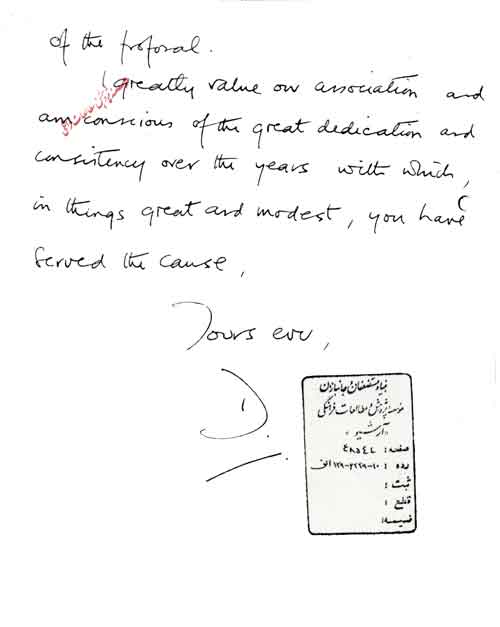 of the proposal.
I greatly value our association and
am conscious of the great dedication and
consistency over the years with which,
in things great and modest, you have
served the cause,
Yours ever,
D.
بنیاد مستضعفان و جانبازان
موسسه پژوهش و مطالعات فرهنگی
« آرشیو »
صفحه :
رده : الف
ثبت :
قطع :
ضمیمه: